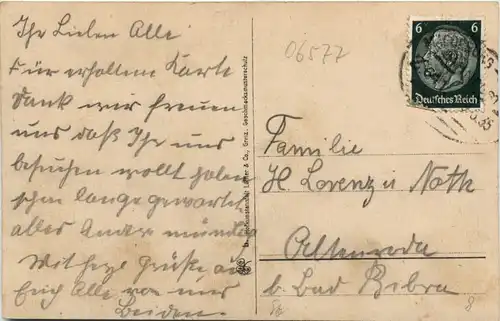 Ihr Lieben Alle
Für erhaltene Karte
Dank wir freuen
uns daß Ihr uns
besuchen wollt haben
schon lange gewartet
alles Andre mündl
Mit herzl Grüße an
Euch Alle von uns
Beiden.
06577
6 6
Deutsches Reich
35
Familie
H. Lorenz u Noth
Altenroda
b. Bad Bibra
& Co., Greiz, Geschmacksmusterschutz
8